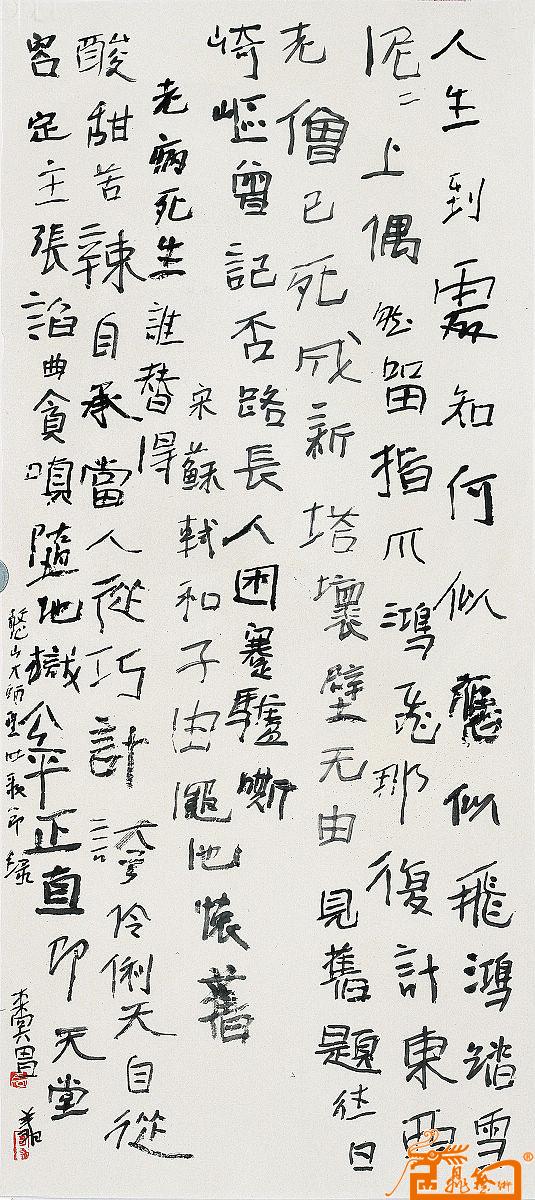 人生到處知何似應似飛鴻踏雪
泥〻上偶然留指爪鴻飛那復計東西
老僧已死成新塔壞壁无由見舊題往日
崎嶇曾記否路長人困蹇驢嘶
宋蘇軾和子由澠池懷舊
老病死生誰替得
酸甜苦辣自承當人從巧計誇伶俐天自從
容定主張諂曲貪嗔墮地獄公平正直即天堂
憨山大師醒世歌節錄